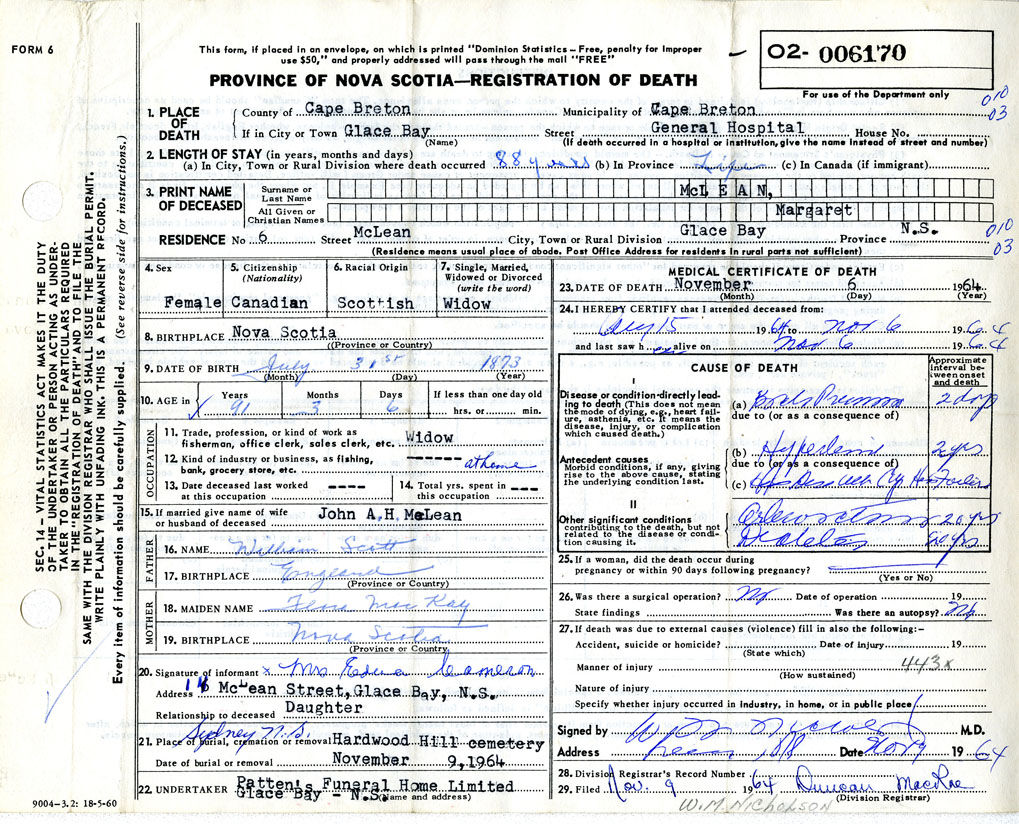 FORM 6
This form, if placed in an envelope, on which is printed "Dominion Statistics – Free, penalty for improper
use $50," and properly addressed will pass through the mail "FREE"
PROVINCE OF NOVA SCOTIA—REGISTRATION OF DEATH
02- 006170
For use of the Department only
010
03
1. PLACE OF DEATH
County of Cape Breton Municipality of Cape Breton
If in City or Town Glace Bay Street General Hospital House No.
(Name) (If death occurred in a hospital or institution, give the name instead of street and number)
2. LENGTH OF STAY (in years, months and days)
(a) In City, Town or Rural Division where death occurred 88 years (b) In Province Life (c) In Canada (if immigrant)
3. PRINT NAME OF DECEASED
Surname or Last Name McLEAN,
All Given or Christian Names Margaret
RESIDENCE No 6 Street McLean City, Town or Rural Division Glace Bay Province N.S.
010
03
(Residence means usual place of abode. Post Office Address for residents in rural parts not sufficient)
4. Sex Female
5. Citizenship (Nationality) Canadian
6. Racial Origin Scottish
7. Single, Married, Widowed or Divorced (write the word) Widow
8. BIRTHPLACE Nova Scotia
(Province or Country)
9. DATE OF BIRTH July 31st 1873
(Month) (Day) (Year)
10. AGE in Years Months Days If less than one day old
91 3 6 hrs. or min.
OCCUPATION
11. Trade, profession, or kind of work as
fisherman, office clerk, sales clerk, etc. Widow
12. Kind of industry or business, as fishing,
bank, grocery store, etc. ------ at home
13. Date deceased last worked
at this occupation ----
14. Total yrs. spent in ---
this occupation
15. If married give name of wife
or husband of deceased John A.H. McLean
FATHER
16. NAME William Scott
17. BIRTHPLACE England
(Province or Country)
MOTHER
18. MAIDEN NAME Flora MacKay
19. BIRTHPLACE Nova Scotia
(Province or Country)
20. Signature of informant x Mrs Edna Cameron
Address McLean Street, Glace Bay, N.S.
Relationship to deceased Daughter
Sydney N.S.
21. Place of burial, cremation or removal Hardwood Hill cemetery
Date of burial or removal November 9, 1964
22. UNDERTAKER Patten's Funeral Home Limited
Glace Bay - N.S. (Name and address)
9004-3.2: 18-5-60
MEDICAL CERTIFICATE OF DEATH
23. DATE OF DEATH November 6 1964
(Month) (Day) (Year)
24. I HEREBY CERTIFY that I attended deceased from:
15 1964 to Nov 6 1964
and last saw h alive on Nov 6 1964
CAUSE OF DEATH
Approximate interval between onset and death
I
Disease or condition directly leading to death (This does not mean the mode of dying, e.g., heart failure, asthenia, etc. It means the disease, injury, or complication which caused death.)
(a) 2 days
due to (or as a consequence of)
Antecedent causes
Morbid conditions, if any, giving rise to the above cause, stating the underlying condition last.
(b) 2 yrs
due to (or as a consequence of)
(c)
II
Other significant conditions
contributing to the death, but not related to the disease or condition causing it.
20 yrs
Diabetes 20 yrs
25. If a woman, did the death occur during
pregnancy or within 90 days following pregnancy?
(Yes or No)
26. Was there a surgical operation? No Date of operation 19
State findings Was there an autopsy? No
27. If death was due to external causes (violence) fill in also the following:–
Accident, suicide or homicide? Date of injury 19
(State which)
Manner of injury 443x
(How sustained)
Nature of injury
Specify whether injury occurred in industry, in home, or in public place
Signed by M.D.
Address Date Nov 9 1964
28. Division Registrar's Record Number
29. Filed Nov. 9 1964 Duncan MacRae
(Division Registrar)
W.M. Nicholson
SEC. 14 – VITAL STATISTICS ACT MAKES IT THE DUTY
OF THE UNDERTAKER OR PERSON ACTING AS UNDER-
TAKER TO OBTAIN ALL THE PARTICULARS REQUIRED
IN THE "REGISTRATION OF DEATH" AND TO FILE THE
SAME WITH THE DIVISION REGISTRAR WHO SHALL ISSUE THE BURIAL PERMIT.
WRITE PLAINLY WITH UNFADING INK. THIS IS A PERMANENT RECORD.
Every item of information should be carefully supplied. (See reverse side for instructions.)